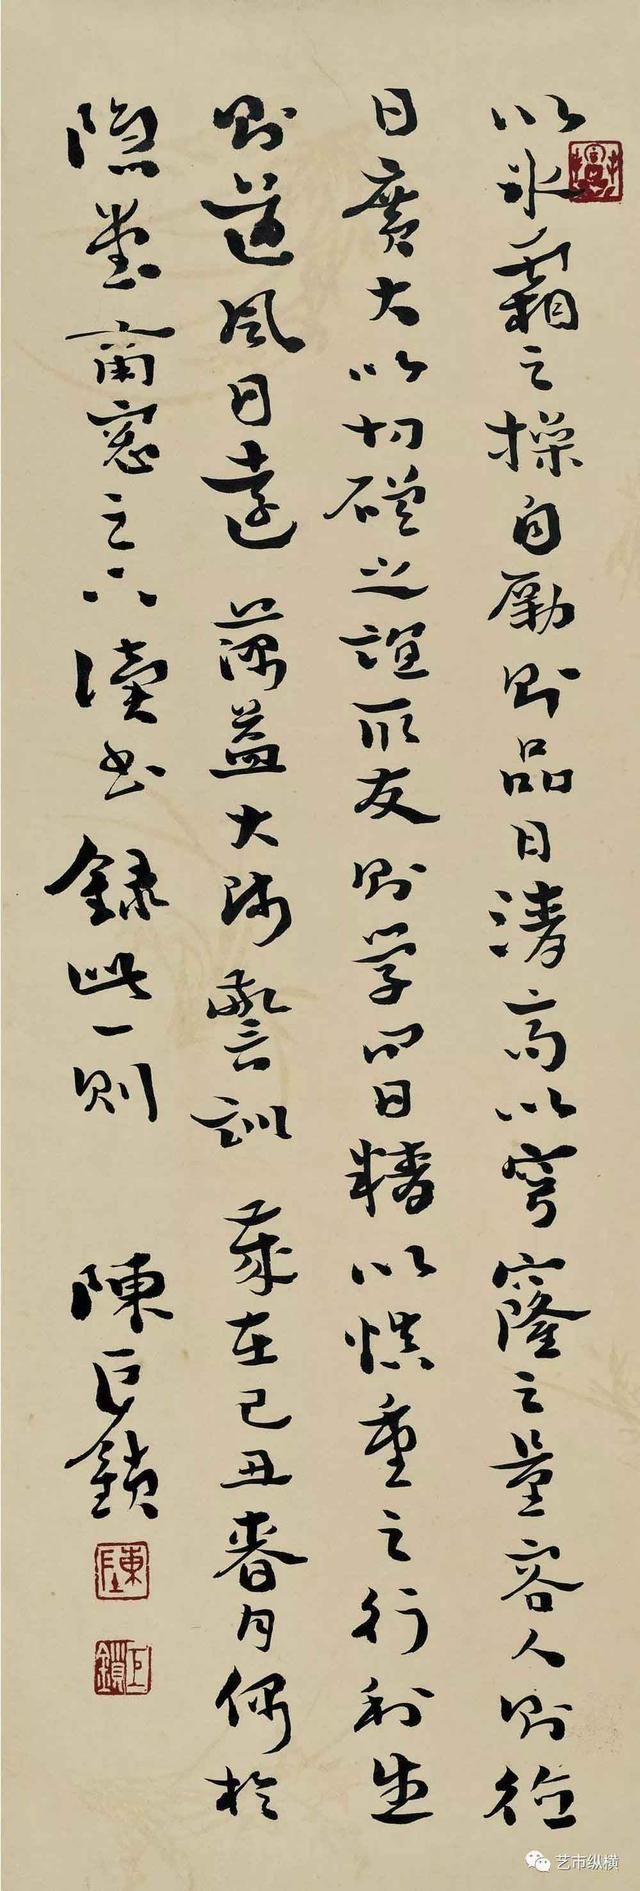 以冰霜之操自勵則品日清高以穹窿之量容人則德
日廣大以切磋之誼取友則學問日精以慎重之行利生
則道風日遠 蕅益大師警訓 歲在己丑春月偶於
隱堂南窗之下讀書錄此一則 陳巨鎖
陳
巨鎖
艺市纵横